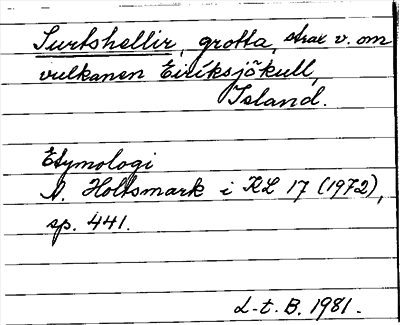 Surtshellir, grotta, strax v. om
vulkanen Eiríksjökull,
Island.
Etymologi
A. Holtsmark i KL 17 (1972),
sp. 441.
L-t. B. 1981.